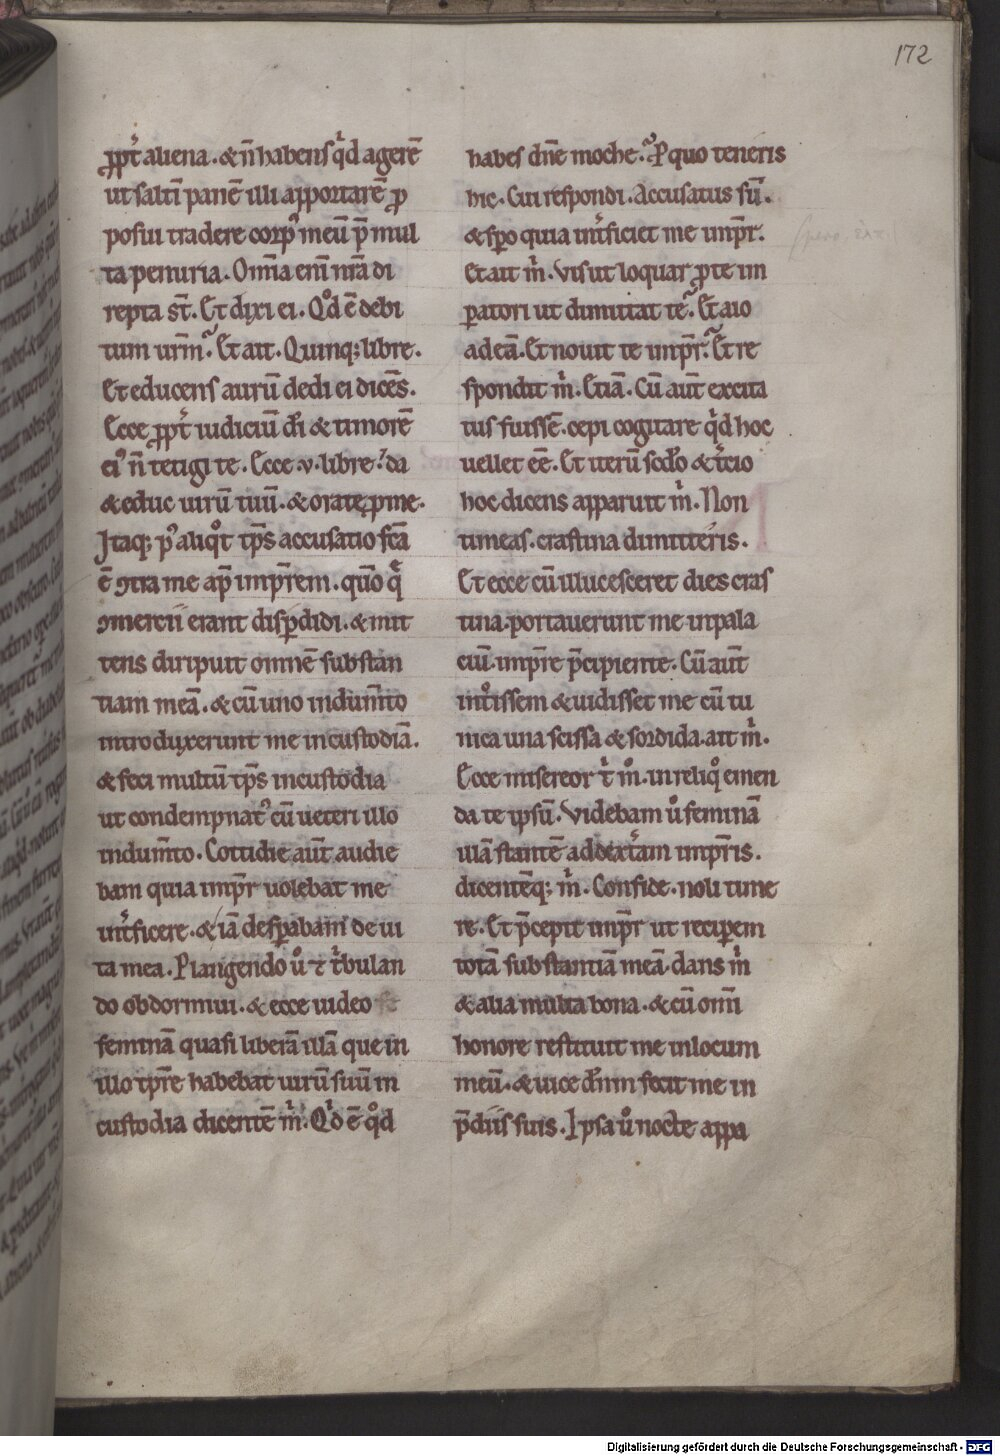 172
ꝓpt᷑ aliena. & n̄ habens qͥd agerē
ut saltī panē illi apportarē ꝓ
posui tradere corpꝰ meū p̄ mul
ta penuria. Om̄ia eni᷑ nr̄a di
repta st̄. Et dixi ei. Qͦd ē debi
tum ur̄m? Et ait. Quinq; libre.
Et educens aurū dedi ei dicēs.
Ecce ꝓpt᷑ iudiciū dī & timorē
eiꝰ n̄ tetigi te. Ecce .v. libre. da
& educ uirū tuū. & orate ꝓ me.
Itaq; pꝰ aliqͦt tp̄s accusatio fc̄a
ē ꝯtra me ap̄ imp̄rem. quō qͣ
ꝯmercii erant disꝑdidi. & mit
tens diripuit omnē substan
tiam meā. & cū uno indum̄to
introduxerunt me in custodiā.
& feci multū tp̄s in custodia
ut condempnatꝰ cū ueteri illo
indum̄to. Cottidie aūt audie
bam quia imp̄r uolebat me
int᷑ficere. & iā desꝑabam de ui
ta mea. Plangendo ů ⁊ t͛bulan
do obdormiui. & ecce uideo
feminā quasi liberā illā que in
illo tp̄re habebat uirū suū in
custodia dicentē m̄. Qͥd ē qͦd
habes dn̄e moche? P quo teneris
hic. Cui respondi. Accusatus sū.
& sꝑo quia int᷑ficiet me imp̄r.
Et ait m̄. Vis ut loquar ꝓ te im
ꝑatori ut dimittat te? Et aio
ad eā. Et nouit te imp̄r? Et re
spondit m̄. Etiā. Cū aūt excita
tus fuissē. cepi cogitare qͥd hoc
uellet eē. Et iterū scd̄o & t͛cio
hoc dicens apparuit m̄. Non
timeas. crastina dimitteris.
Et ecce cū illucesceret dies cras
tina. portauerunt me in pala
ciū. imp̄re p̄cipiente. Cū aūt
intͦissem & uidisset me cū tu
nica una scissa & sordida. ait m̄.
Ecce misereor t͛ mͦ. in reliqͦ emen
da te ipsū. Videbam ů feminā
illā stantē ad dext᷑am imp̄ris.
dicentēq; m̄. Confide. noli time
re. Et p̄cepit imp̄r ut reciꝑem
totā substantiā meā. dans m̄
& alia multa bona. & cū om̄i
honore restituit me in locum
meū. & uice dn̄m fecit me in
p̄diis suis. Ipsa ů nocte appa
Digitalisierung gefördert durch die Deutsche Forschungsgemeinschaft - DFG